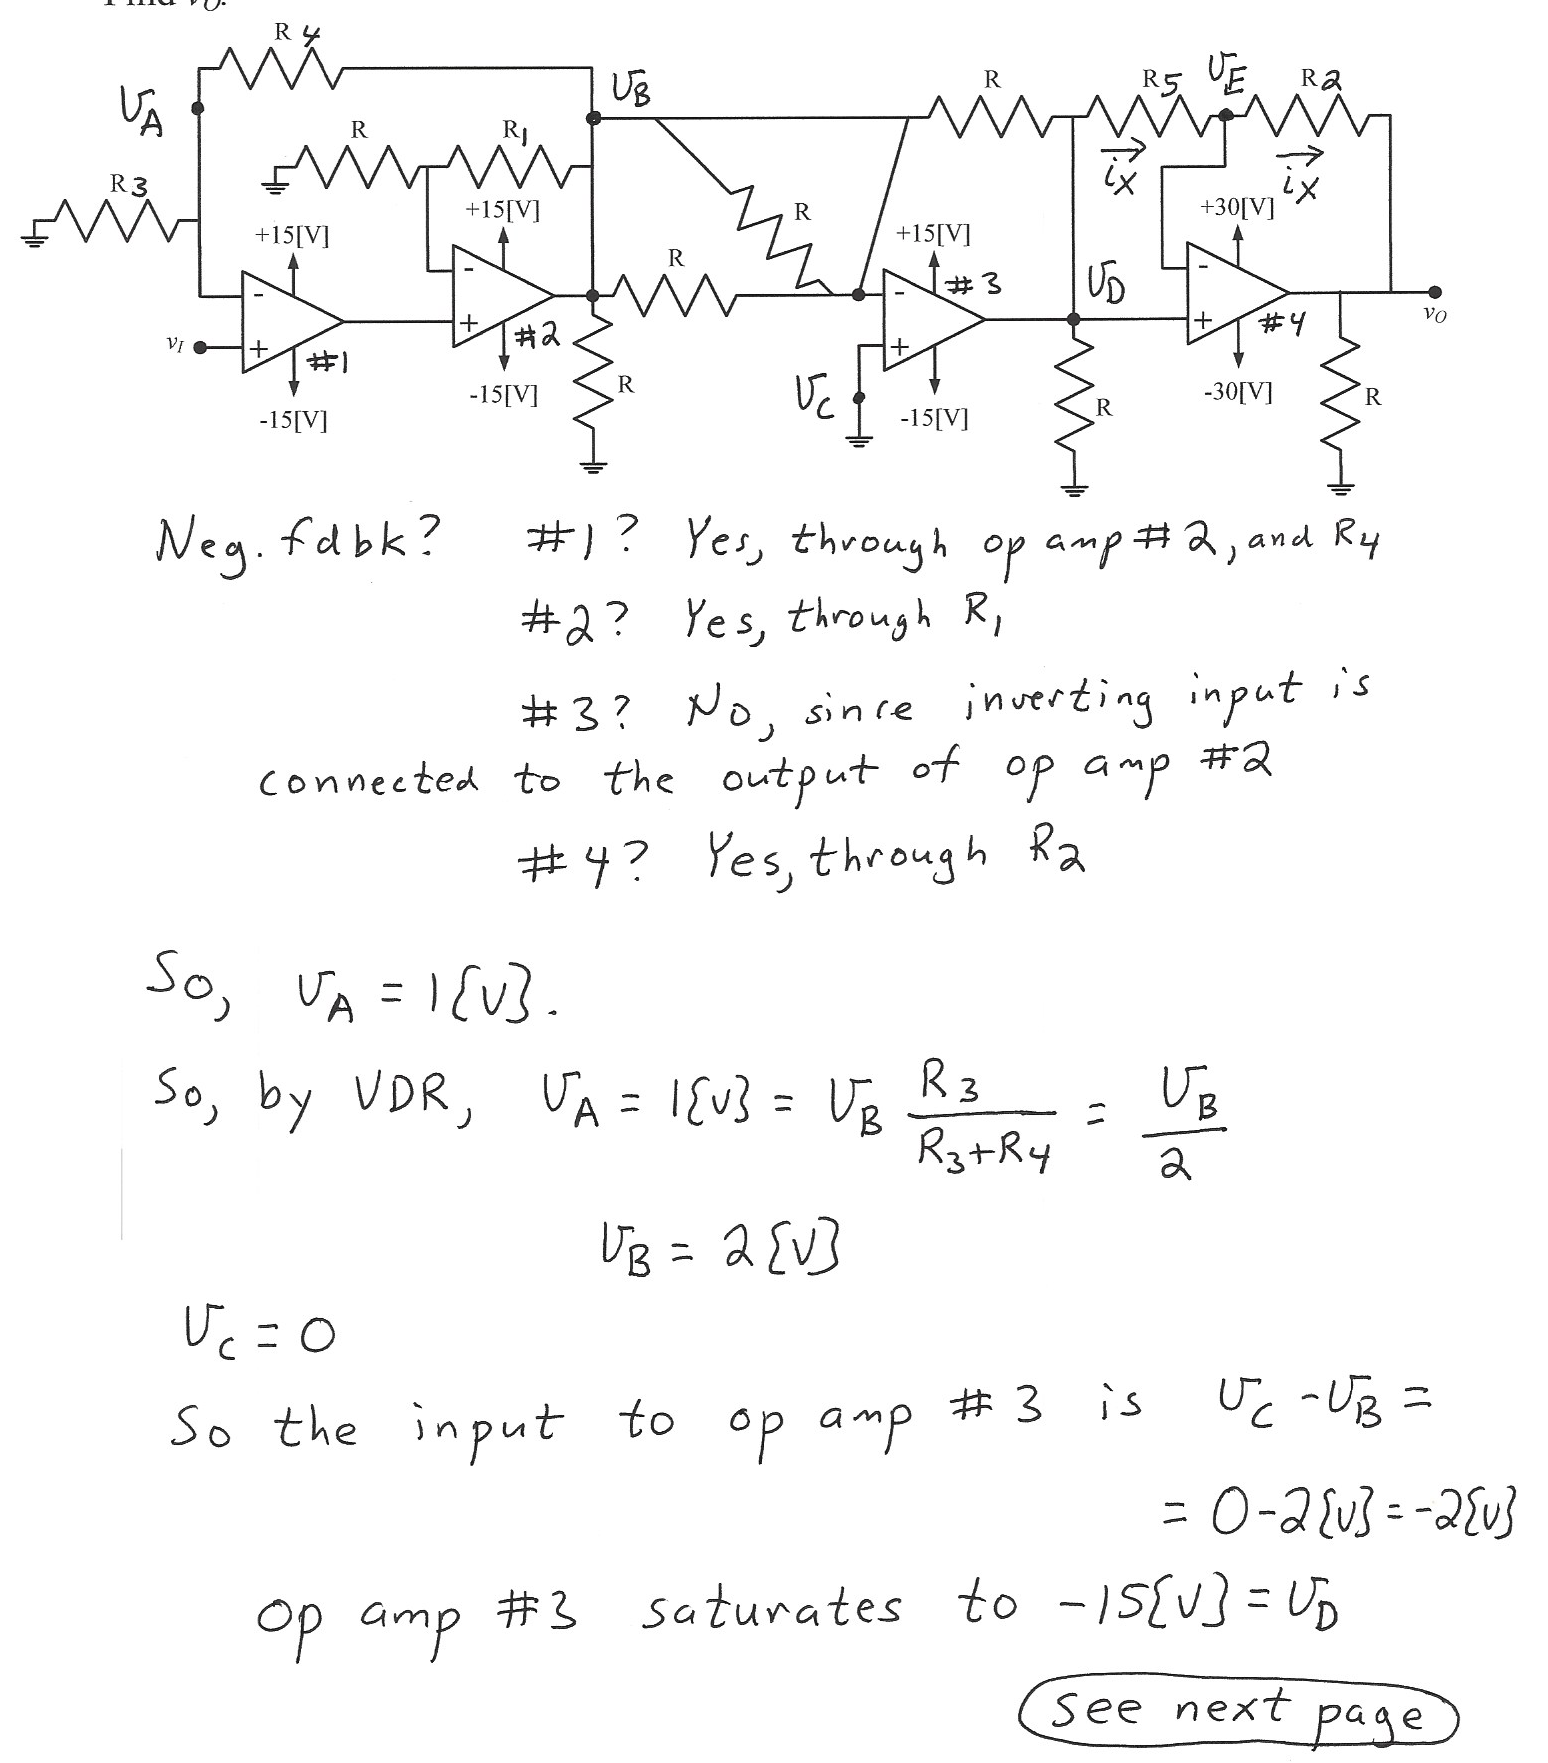 Find vO.
R 4
VA
VB
R
R5
VE
R2
R
R1
iX
iX
R3
+15[V]
+15[V]
R
+15[V]
+30[V]
R
-
-
-
#3
VD
-
vI
+
#1
+
#2
+
+
#4
vO
-15[V]
-15[V]
R
VC
-15[V]
R
-30[V]
R
Neg. fdbk? #1? Yes, through op amp #2, and R4
#2? Yes, through R1
#3? No, since inverting input is
connected to the output of op amp #2
#4? Yes, through R2
So, VA = 1[V].
So, by VDR, VA = 1[V] = VB R3/(R3+R4) = VB/2
VB = 2[V]
VC = 0
So the input to op amp #3 is VC - VB =
= 0 - 2[V] = -2[V]
op amp #3 saturates to -15[V] = VD
see next page